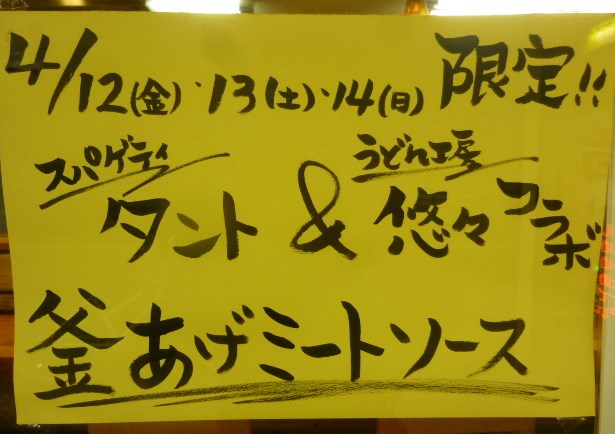 4/12(金)・13(土)・14(日) 限定!!
スパゲティ うどん工房
タント & 悠々 コラボ
釜あげミートソース